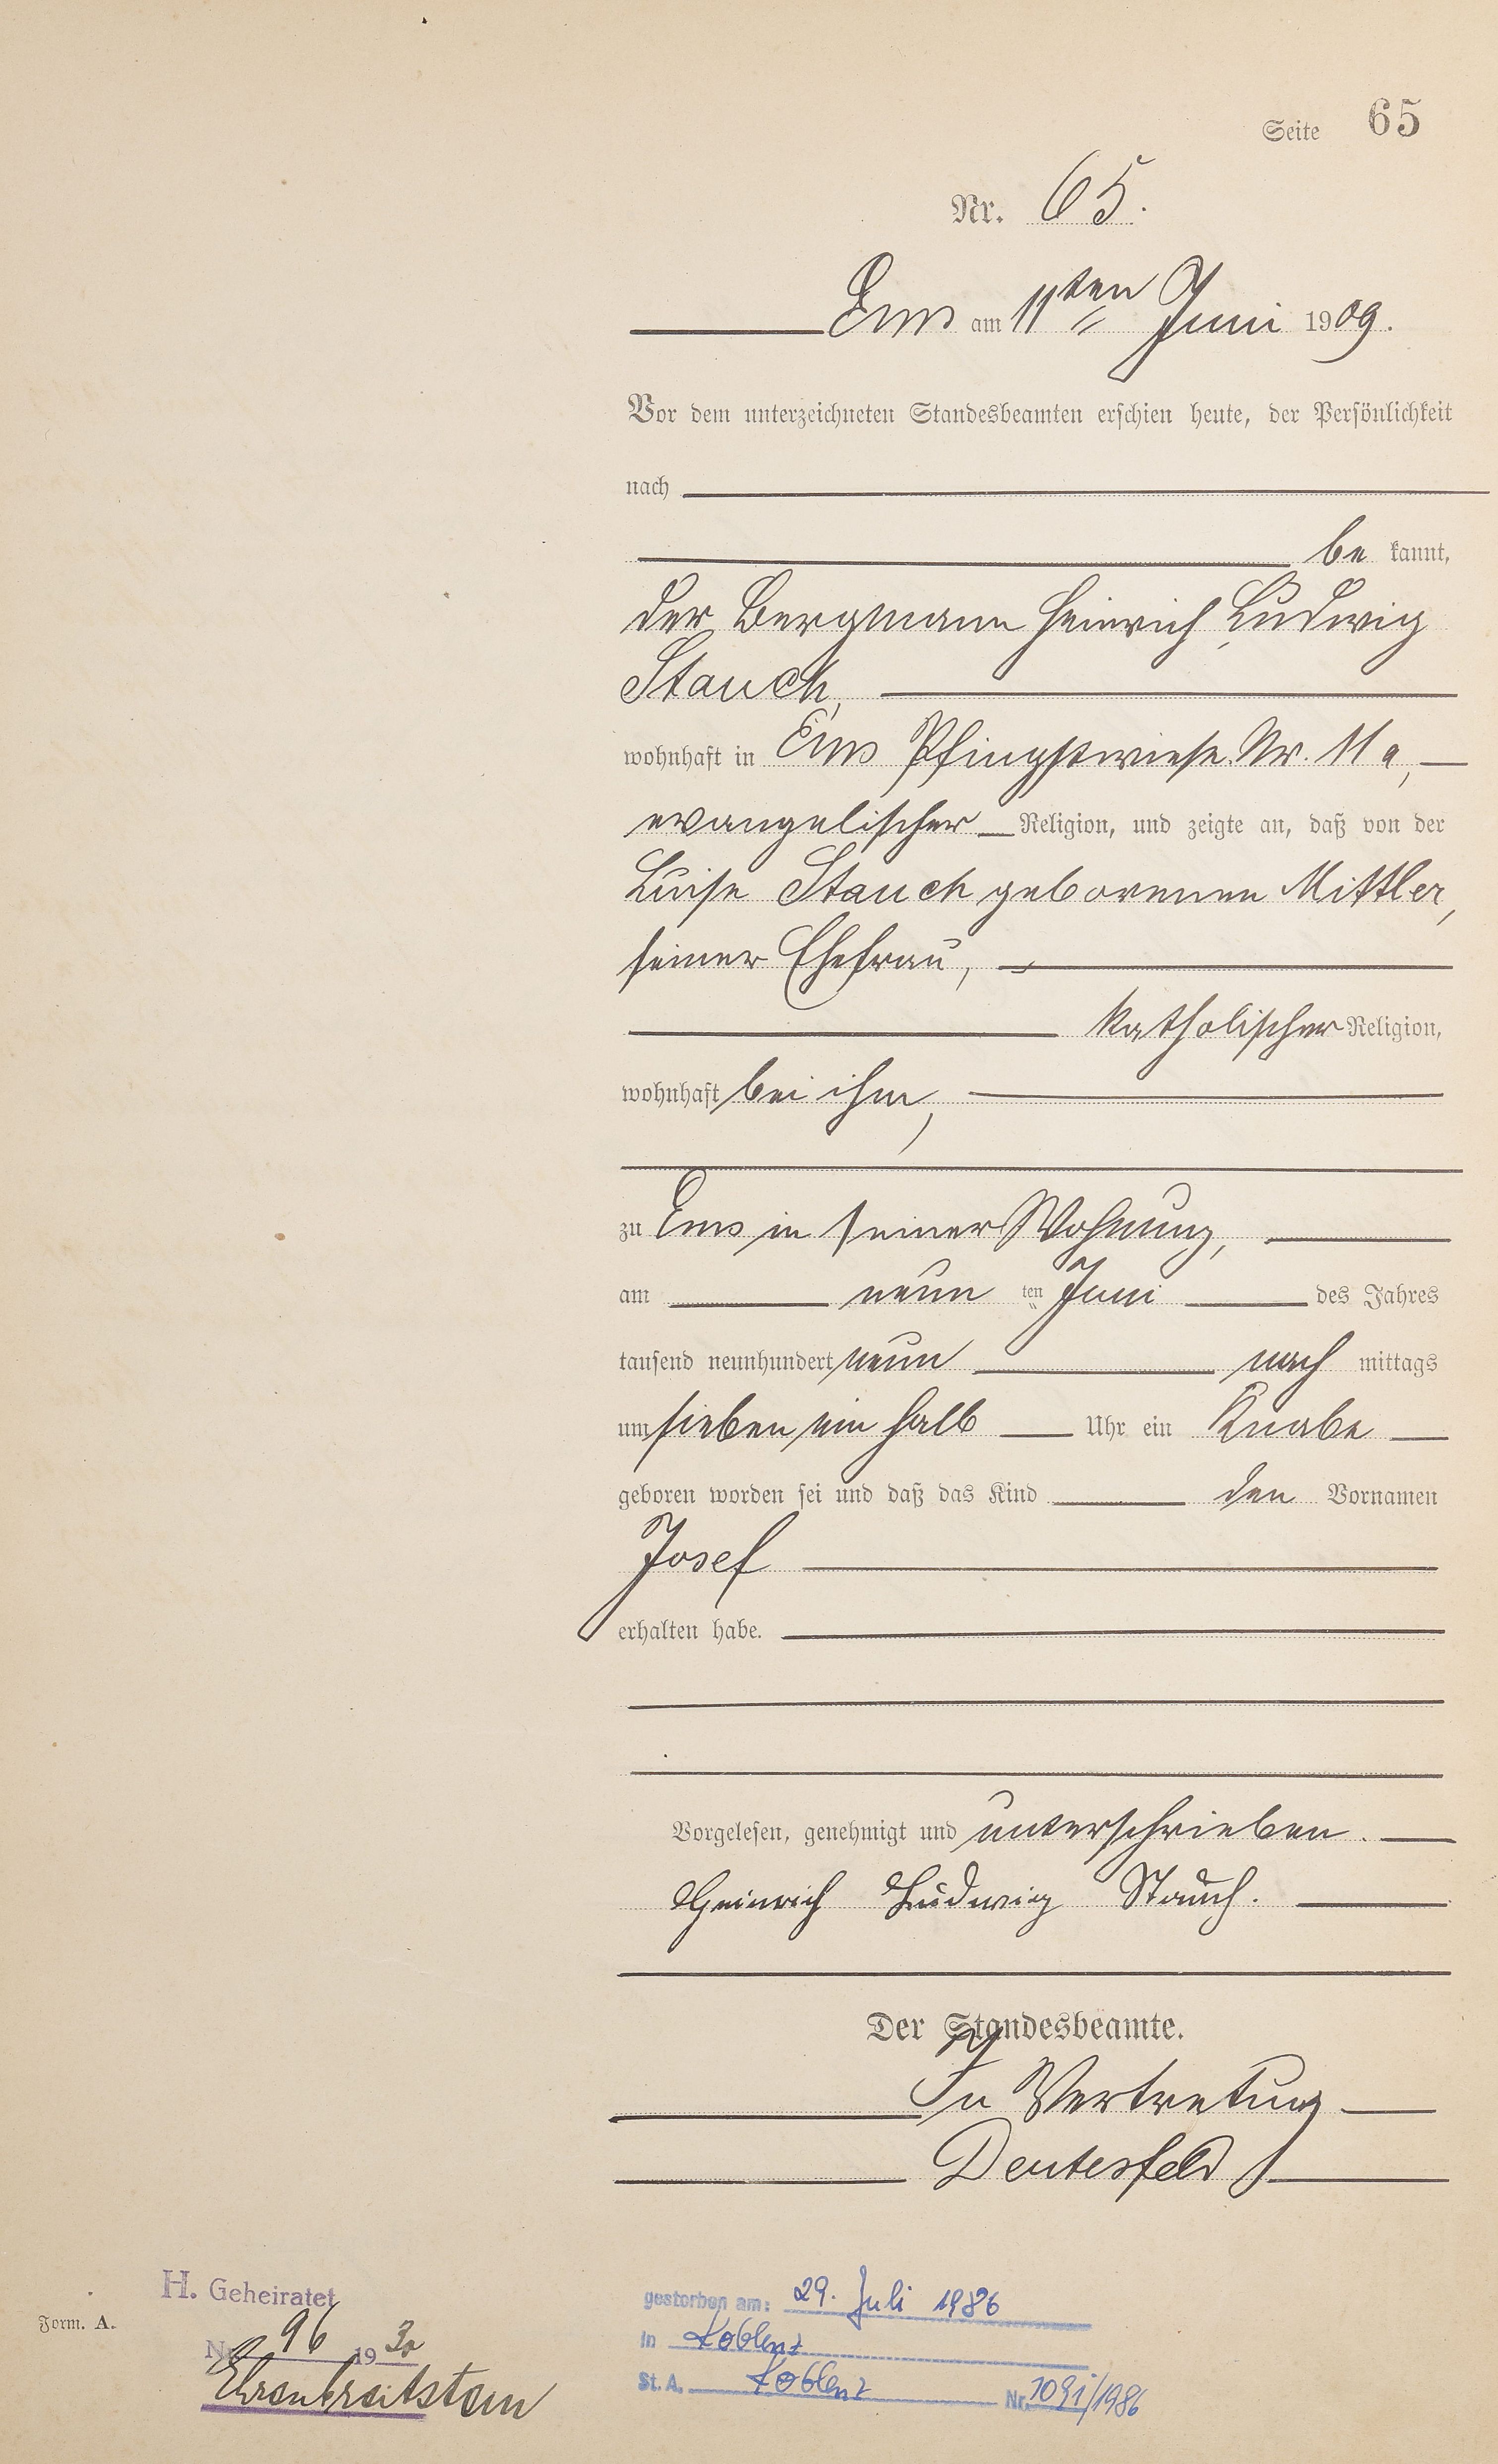 Seite 65
Nr. 65.
Ems am 11ten Juni 1909.
Vor dem unterzeichneten Standesbeamten erschien heute, der Persönlichkeit
nach
be kannt,
der Bergmann Heinrich Ludwig
Stauch,
wohnhaft in Ems Pfingstwiese Nr. 11a,
evangelischer Religion, und zeigte an, daß von der
Luise Stauch geborenen Mittler,
seiner Ehefrau,
katholischer Religion,
wohnhaft bei ihm,
zu Ems in seiner Wohnung,
am neun ten Juni des Jahres
tausend neunhundert neun nach mittags
um sieben ein halb Uhr ein Knabe
geboren worden sei und daß das Kind den Vornamen
Josef
erhalten habe.
Vorgelesen, genehmigt und unterschrieben.
Heinrich Ludwig Stauch.
Der Standesbeamte.
In Vertretung
Deutesfeld
H. Geheiratet
Nr. 96 1930
Ehrenbreitstein
Form. A.
gestorben am: 29. Juli 1986
in Koblenz
St. A. Koblenz Nr. 1091/1986